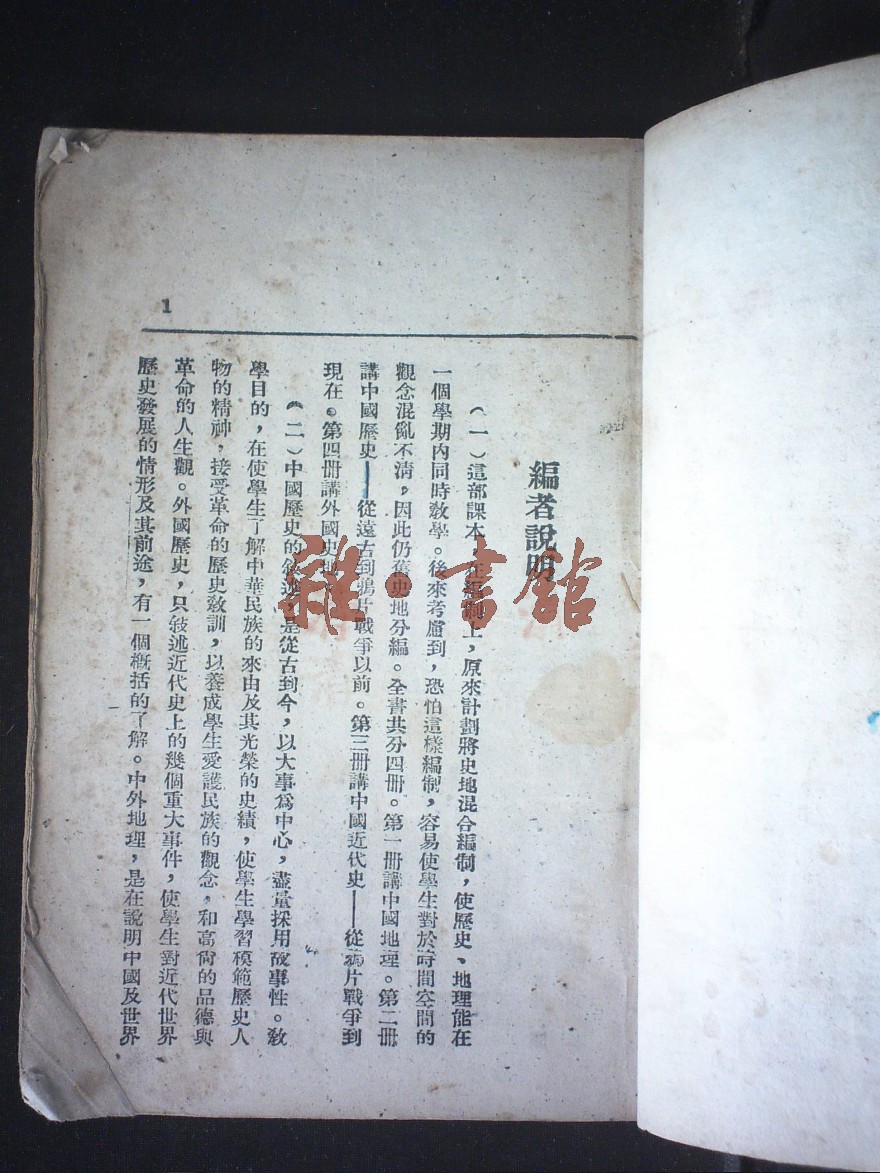 編者說明
(一)這部課本,在編制上,原來計劃將史地混合編制,使歷史、地理能在
一個學期內同時教學。後來考慮到,恐怕這樣編制,容易使學生對於時間空間的
觀念混亂不清,因此仍舊史地分編。全書共分四册。第一册講中國地理。第二册
講中國歷史——從遠古到鴉片戰爭以前。第三册講中國近代史——從鴉片戰爭到
現在。第四册講外國史地。
(二)中國歷史的敘述,是從古到今,以大事為中心,盡量採用故事性。教
學目的,在使學生了解中華民族的來由及其光榮的史績,使學生學習模範歷史人
物的精神,接受革命的歷史教訓,以養成學生愛護民族的觀念,和高尚的品德與
革命的人生觀。外國歷史,只敍述近代史上的幾個重大事件,使學生對近代世界
歷史發展的情形及其前途,有一個概括的了解。中外地理,是在說明中國及世界
1
雜·書館